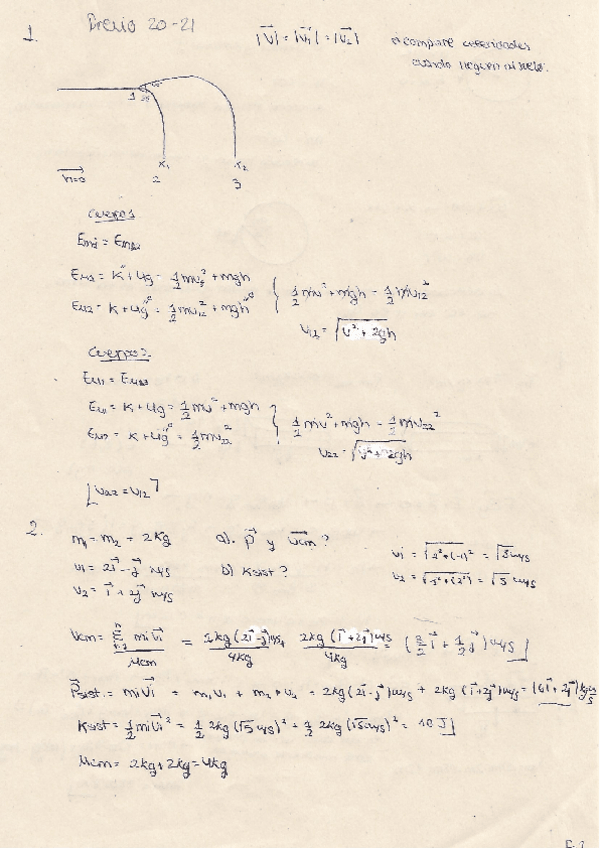 1. Previo 20-21
|v⃗| = |v⃗₁| = |v⃗₂|
compare velocidades
cuando lleguen al suelo.
1
x₁ x₂
h=0 2 3
Cuerpo 1
Em1 = Em2
Em1 = K + Ug = 1/2 mv² + mgh
Em2 = K + Ug = 1/2 mv12² + mgh
1/2 mv² + mgh = 1/2 mv12²
v12 = √(v² + 2gh)
Cuerpo 2
Em1 = Em2
Em1 = K + Ug = 1/2 mv² + mgh
Em2 = K + Ug = 1/2 mv22²
1/2 mv² + mgh = 1/2 mv22²
v22 = √(v² + 2gh)
v22 = v12
2.
m₁ = m₂ = 2kg a). p⃗ y v⃗cm?
v₁ = 2i⃗ - j⃗ m/s b) Ksist?
v₂ = i⃗ + 2j⃗ m/s
v₁ = √(2² + (-1)²) = √5 m/s
v₂ = = √5 m/s
Vcm = Σ mi v⃗i / Mcm = 2kg (2i⃗ - j⃗) m/s / 4kg + 2kg (i⃗ + 2j⃗) m/s / 4kg = (3/2 i⃗ + 1/2 j⃗) m/s
P⃗sist. = mi v⃗i = m₁v₁ + m₂ v₂ = 2kg (2i⃗ - j⃗) m/s + 2kg (i⃗ + 2j⃗) m/s = (6i⃗ + 2j⃗) kg m/s
Ksist = 1/2 mi v⃗i² = 1/2 2kg (√5 m/s)² + 1/2 2kg (√5 m/s)² = 10 J
Mcm = 2kg + 2kg = 4kg